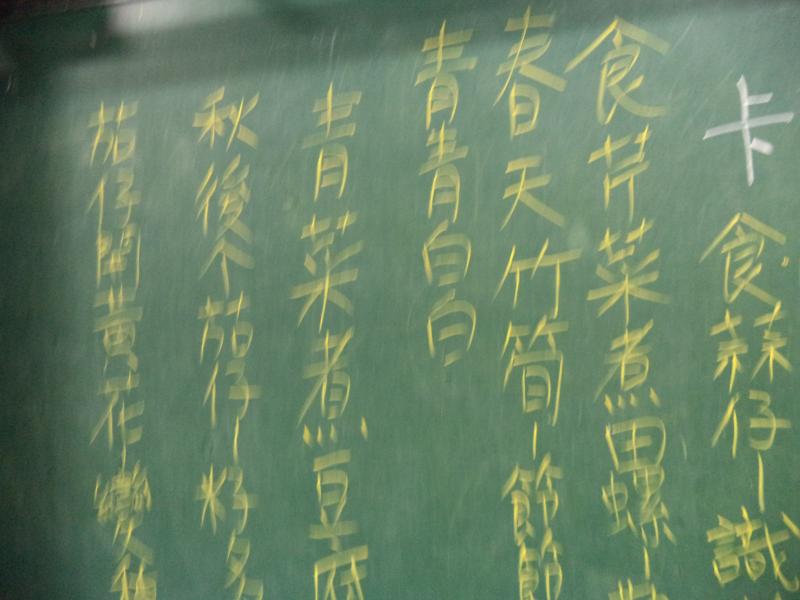 卡食蒜仔－識
食芹菜煮田螺－
春天竹筒－節節
青青白白
青菜煮豆腐
秋後个茄仔－籽多
茄仔開黃花－變種